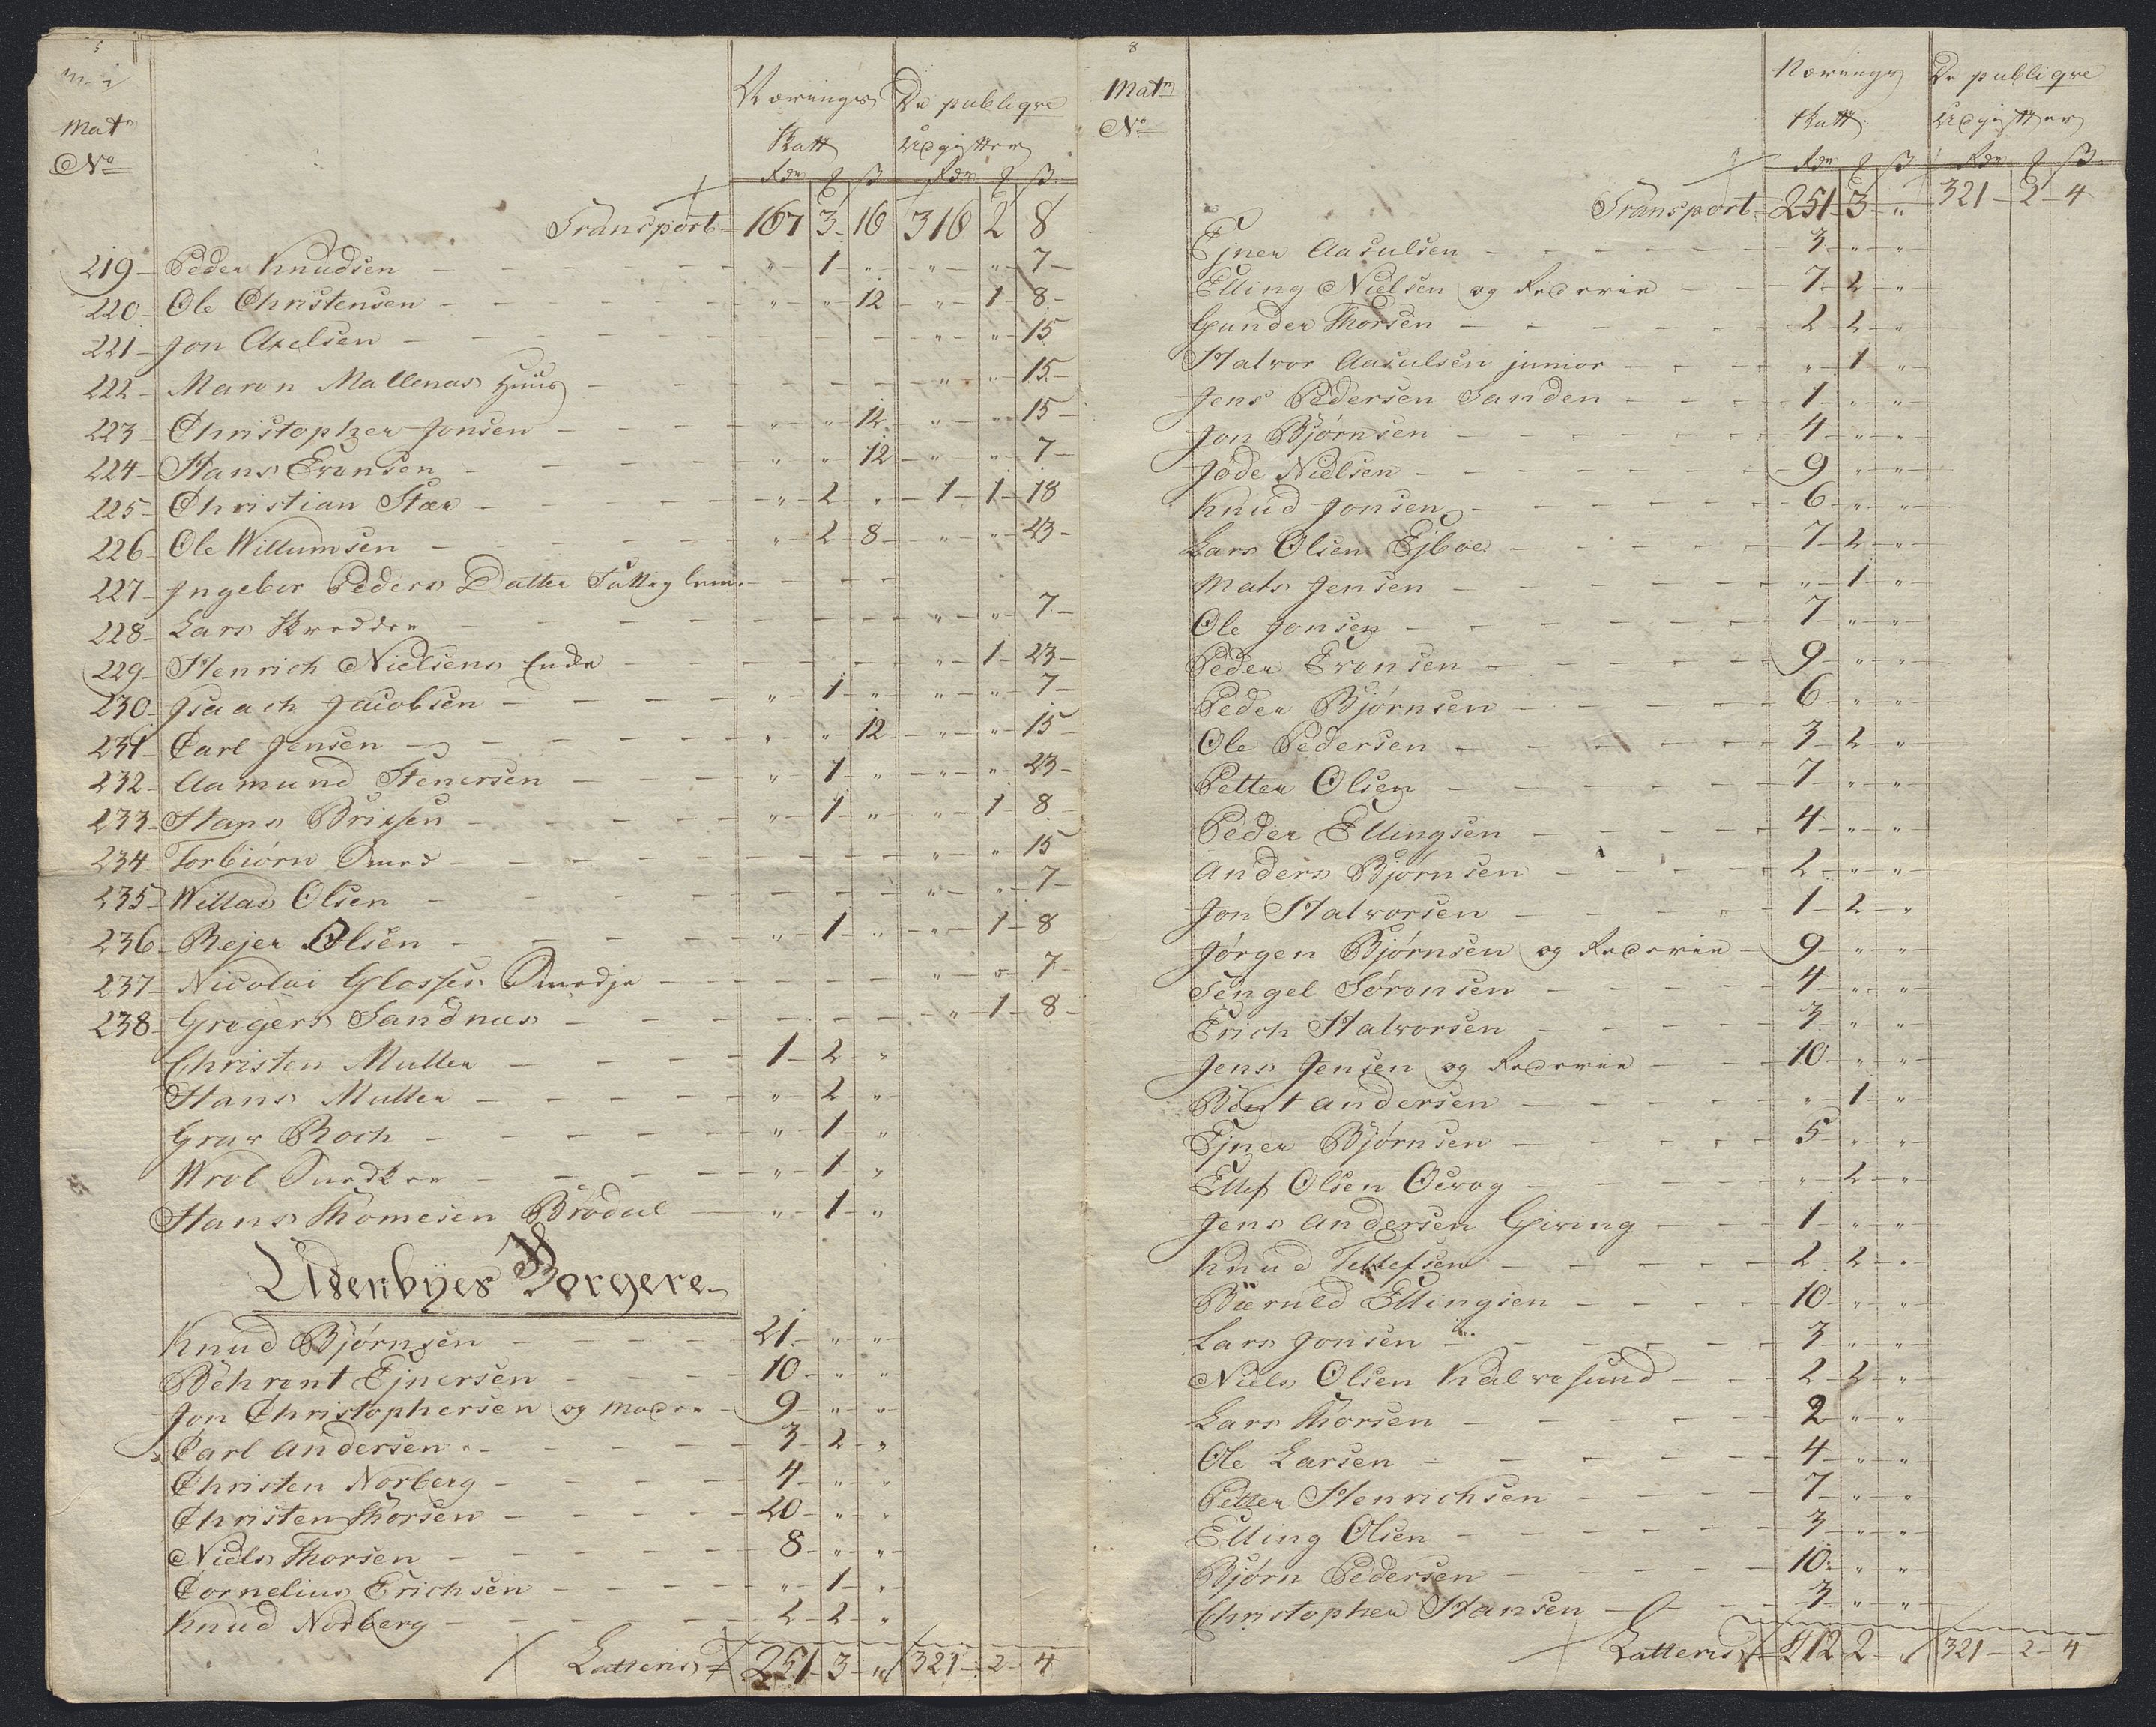 5
Mat
No
Nærings De publiqve
Skatt Udgifter
Rdr ß Rdr ß
Transport 167 3 16 316 2 8
219 Peder Knudsen " 1 " " " 7
220 Ole Christensen " " 12 " 1 8
221 Jon Axelsen " " 15
222 Maren Mallenas Huus " " 15
223 Christopher Jonsen " " 12 " " 15
224 Hans Evensen " " 12 " " 7
225 Christian Stær " 2 " 1 1 18
226 Ole Willumsen " 2 8 " " 23
227 Ingebor Peders Datter
228 Lars Skredder " " 7
229 Henrich Nielsens Enke " 1 23
230 Isaach Jacobsen " 1 " " " 7
231 Carl Jensen " " 12 " " 15
232 Aamund Stenersen " 1 " " " 23
233 Hans Brixsen " 1 " " 1 8
234 Torbiørn Smed " " 15
235 Willas Olsen " " 7
236 Rejer Olsen " 1 " " 1 8
237 Nicolai Glosses Smedje " " 7
238 Gregers Sandnæs " 1 8
Christen Muller 1 2 "
Hans Muller " 2 "
Grav Roch " 1 "
Wrol Snedker " 1 "
Hans Thomesen Brødal " 1 "
Udenbyes Borgere
Knud Bjørnsen 21 " "
Behrent Ejnersen 10 " "
Jon Christophersen og Moder 9 " "
Carl Andersen 3 2 "
Christen Norberg 4 " "
Christen Thorsen 20 " "
Niels Thorsen 8 " "
Cornelius Erichsen " 1 "
Knud Norberg 2 2 "
Latteris 251 3 " 321 2 4
8
Mat
No
Nærings De publiqve
Skatt Udgifter
Rdr ß Rdr ß
Transport 251 3 " 321 2 4
Ejner Aasulsen 3 " "
Elling Nielsen og Rederie 7 2 "
Gunder Thorsen 2 2 "
Halvor Aasulsen junior " 1 "
Jens Pedersen Sanden 1 " "
Jon Bjørnsen 4 " "
Jøde Nielsen 9 " "
Knud Jonsen 6 " "
Lars Olsen Ejboe 7 2 "
Mats Jensen " 1 "
Ole Jonsen 7 " "
Peder Evensen 9 " "
Peder Bjørnsen 6 " "
Ole Pedersen 3 2 "
Petter Olsen 7 " "
Peder Ellingsen 4 " "
Anders Bjørnsen 2 " "
Jon Halvorsen 1 2 "
Jørgen Bjørnsen og Rederie 9 " "
Tengel Sørensen 4 " "
Erich Halvorsen 3 " "
Jens Jensen og Rederie 10 " "
Bent Andersen " 1 "
Ejner Bjørnsen 5 " "
Ellef Olsen Oevog " 2 "
Jens Andersen Giving 1 " "
Knud Tellefsen 2 2 "
Bærn​ed Ellingsen 10 " "
Lars Jonsen 3 " "
Niels Olsen Kalvesund 2 2 "
Lars Thorsen 2 " "
Ole Larsen 4 " "
Petter Henrichsen 7 " "
Elling Olsen 3 " "
Bjørn Pedersen 10 " "
Christopher Hansen 3 " "
Latteris 412 2 321 2 4